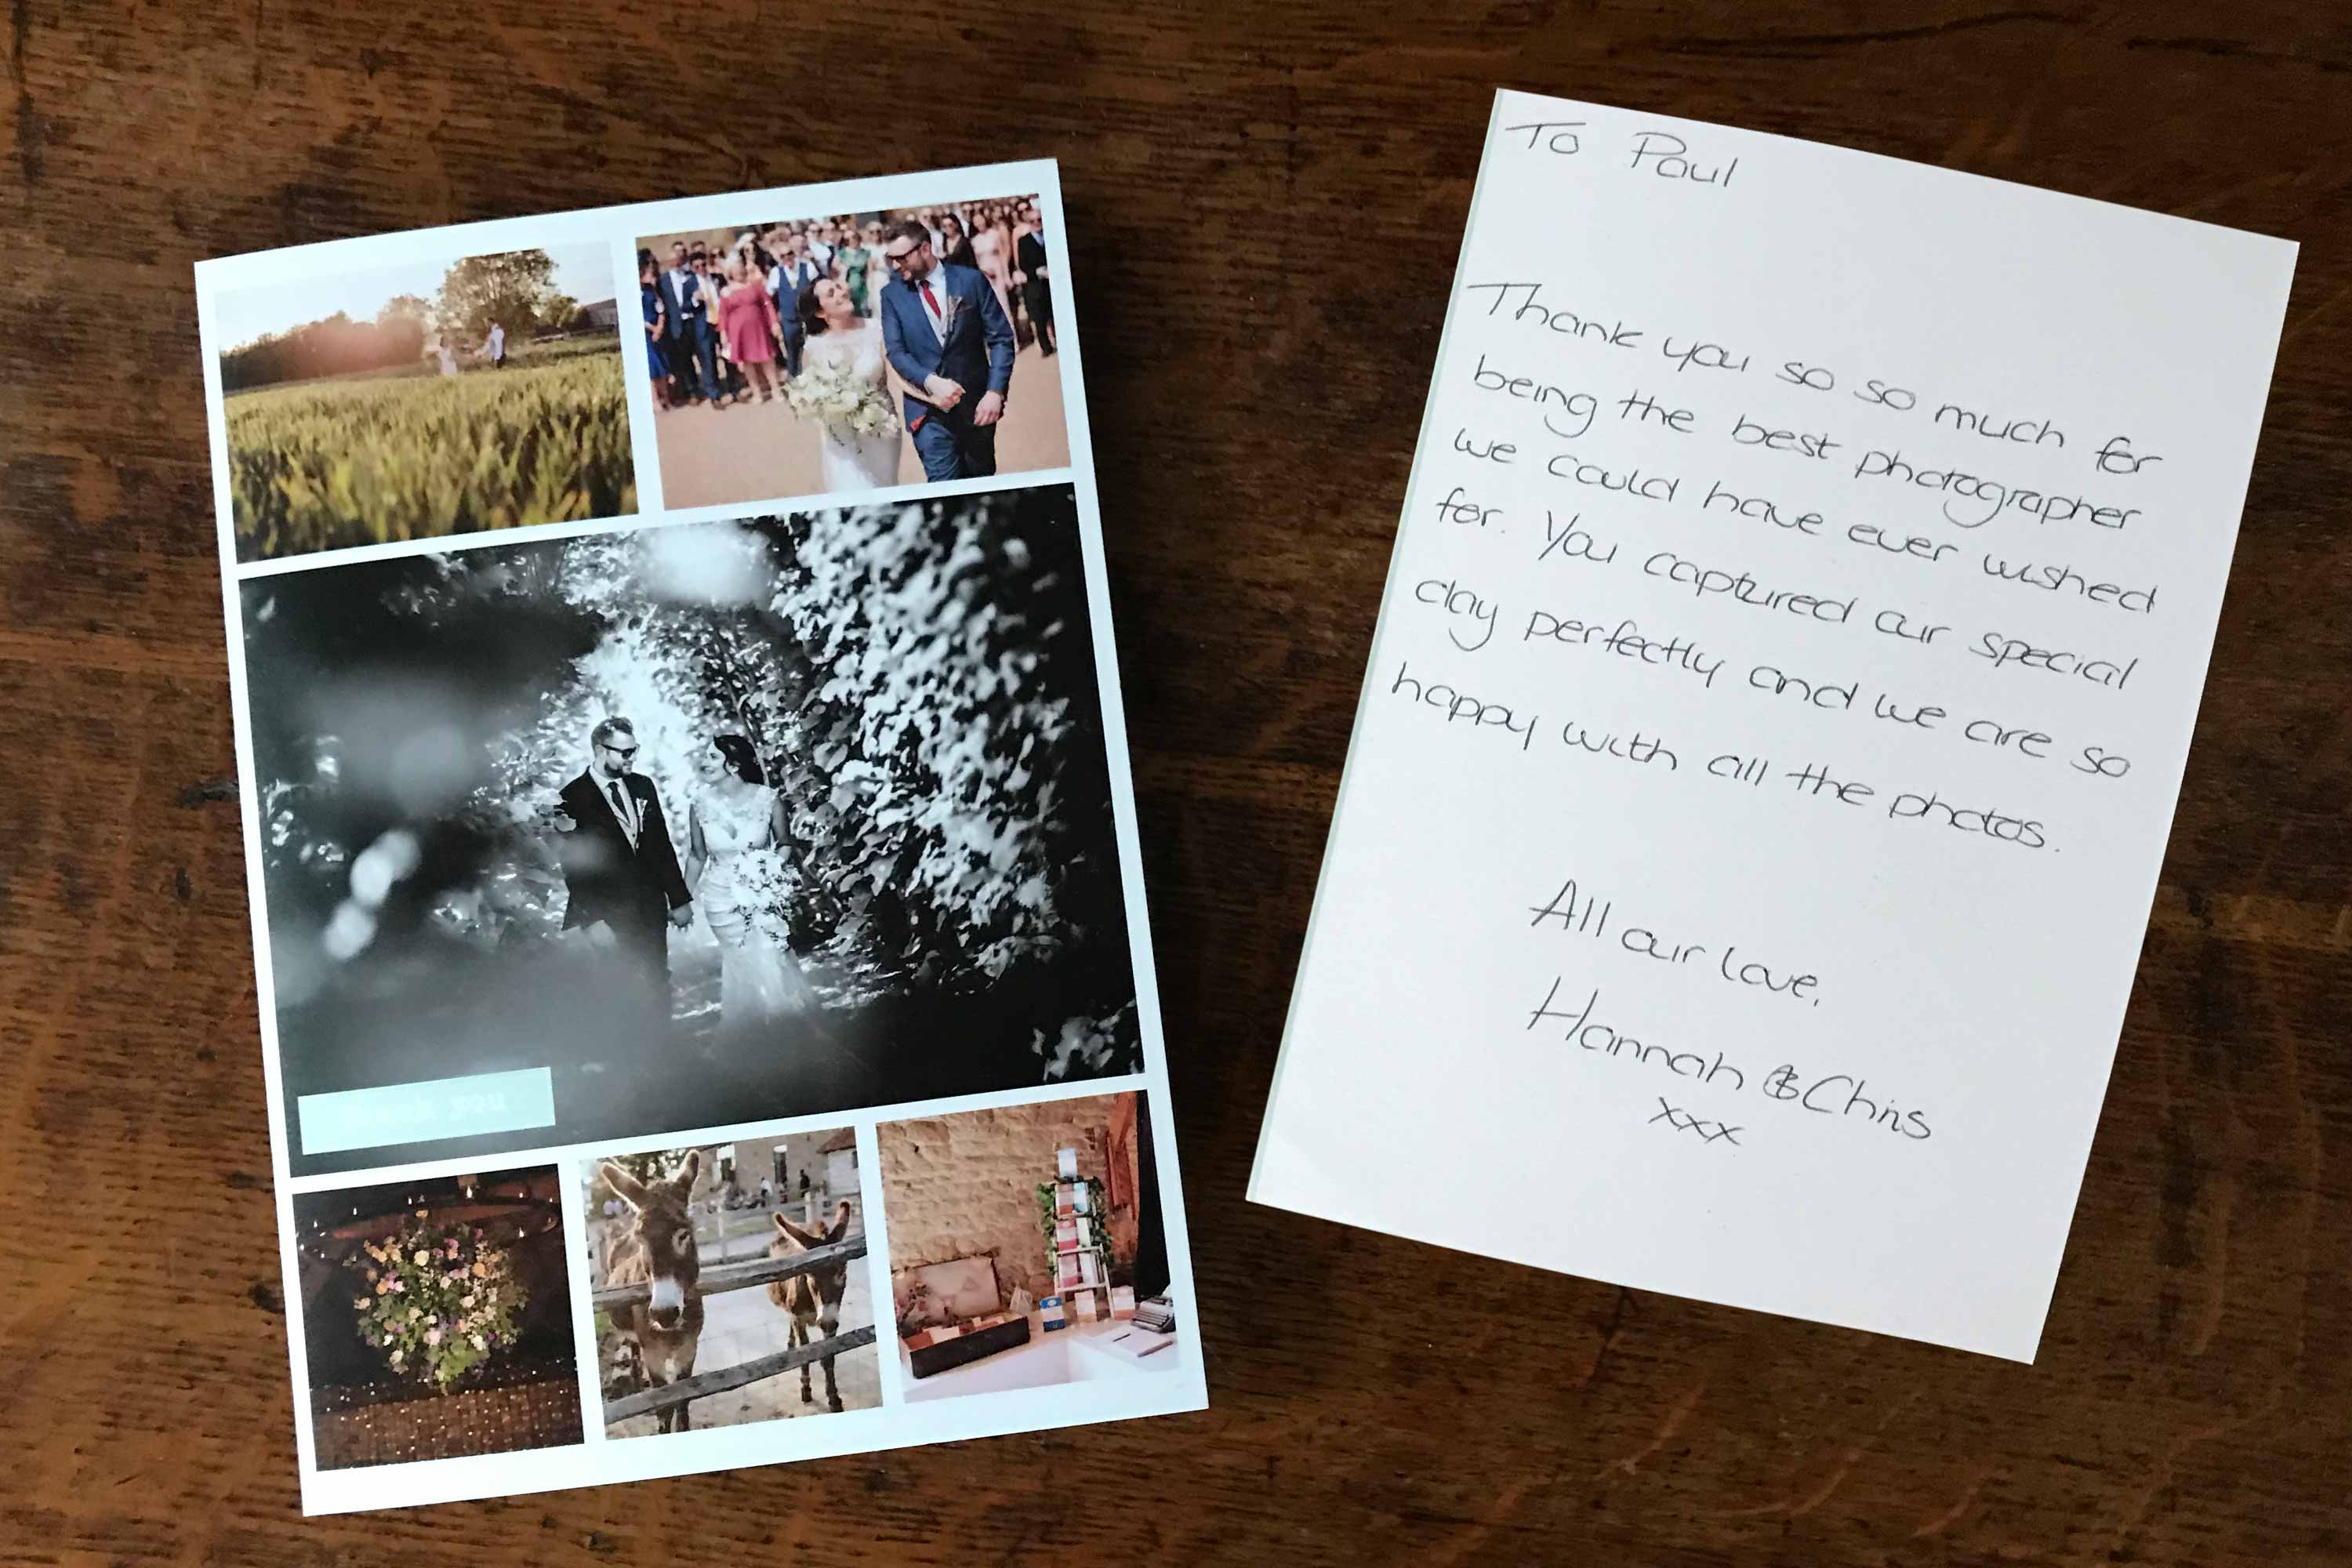 To Paul
Thank you so so much for
being the best photographer
we could have ever wished
for. You captured our special
day perfectly and we are so
happy with all the photos.
All our love,
Hannah & Chris
xxx
you